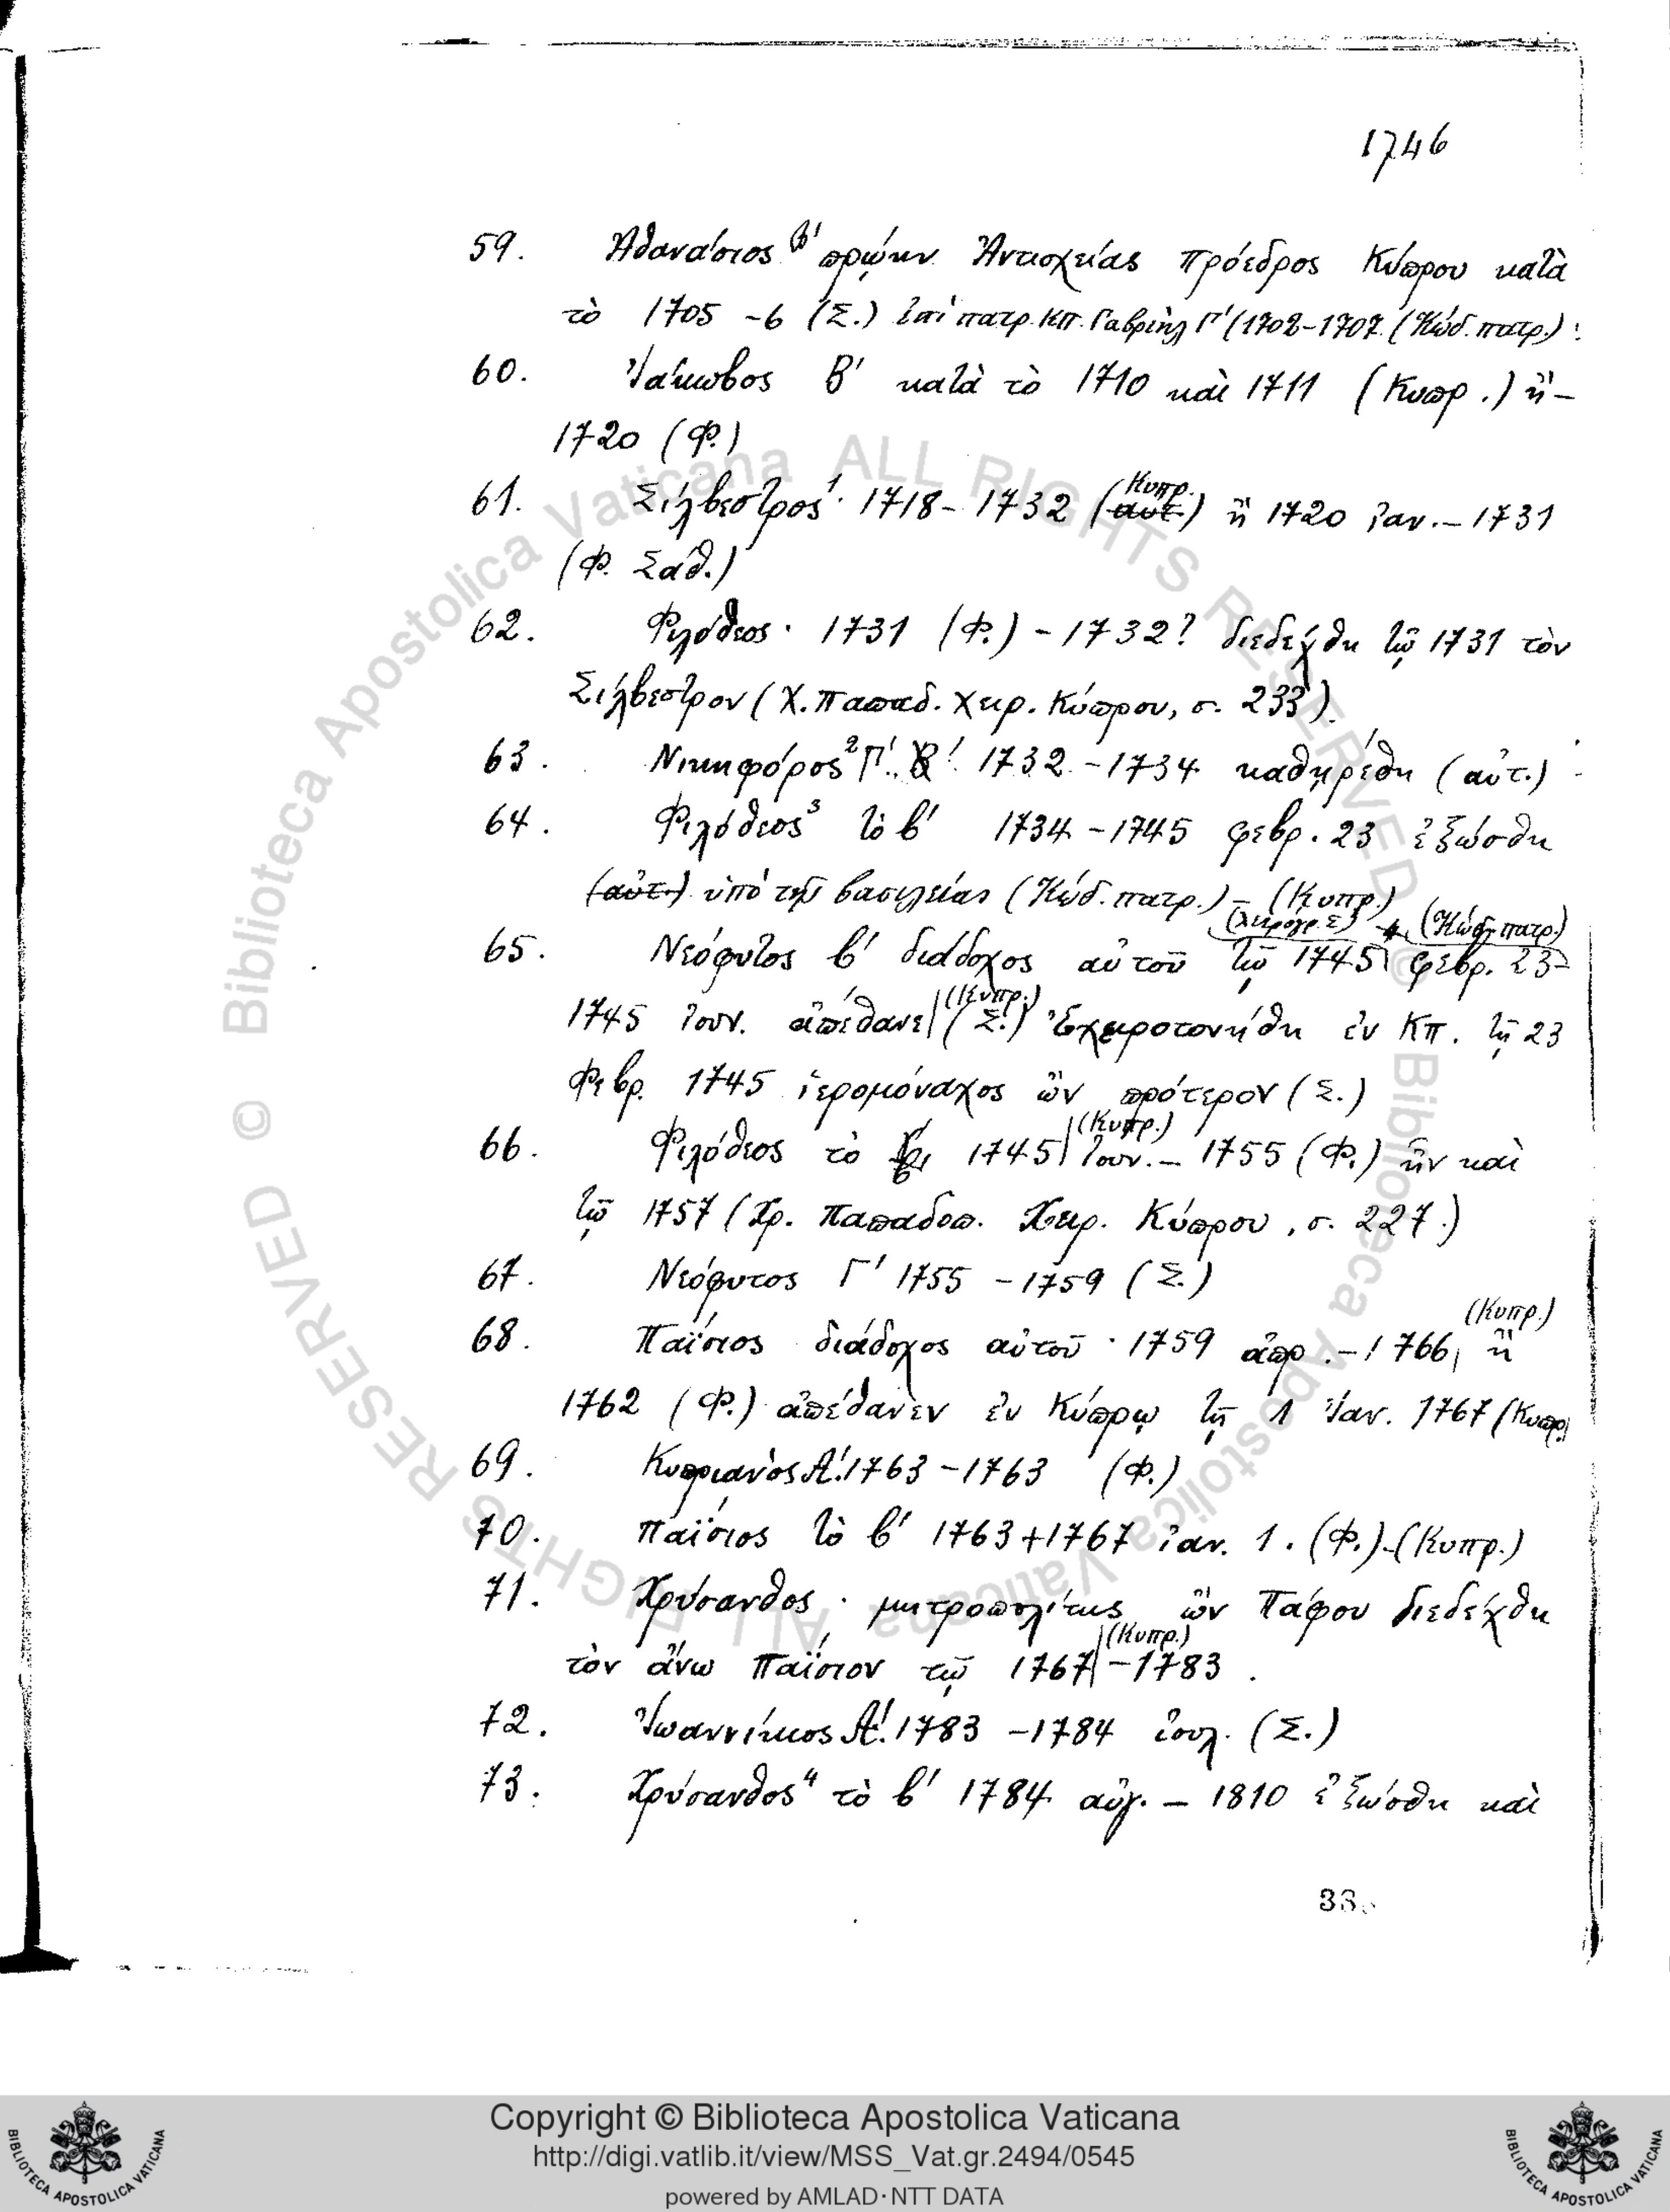 1746
59. Ἀθανάσιος β' πρώην Ἀντιοχείας πρόεδρος Κύπρου κατὰ
τὸ 1705 -6 (Σ.) ἐπὶ πατρ. Κπ. Γαβριὴλ Γ' (1702-1707. (Κώδ. πατρ.) :
60. Ἰάκωβος Β' κατὰ τὸ 1710 καὶ 1711 (Κυπρ.) ἢ -
1720 (Φ.)
61. Σίλβεστρος¹· 1718 - 1732 (αὐτ.) (Κυπρ.) ἢ 1720 ἰαν. - 1731
(Φ. Σάθ.)
62. Φιλόθεος · 1731 (Φ.) - 1732? διεδέχθη τῷ 1731 τὸν
Σίλβεστρον (Χ. Παπαδ. Χειρ. Κύπρου, σ. 233).
63. Νικηφόρος² Γ'. Β' 1732 - 1734 καθῃρέθη (αὐτ.)
64. Φιλόθεος³ τὸ β' 1734 - 1745 φεβρ. 23 ἐξώσθη
(αὐτ.) ὑπὸ τῆς βασιλείας (Κώδ. πατρ.) - (Κυπρ.)
65. Νεόφυτος β' διάδοχος αὐτοῦ τῷ 1745 (χειρόγρ. Σ) φεβρ. 23 - (Κώδ. πατρ.)
1745 ἰουν. ἀπέθανε (Κυπρ.) (Σ.) Ἐχειροτονήθη ἐν Κπ. τῇ 23
Φεβρ. 1745 ἱερομόναχος ὢν πρότερον (Σ.)
66. Φιλόθεος τὸ 1745 (Κυπρ.) ἰουν. - 1755 (Φ.) ἦν καὶ
τῷ 1757 (Χρ. Παπαδοπ. Χειρ. Κύπρου, σ. 227.)
67. Νεόφυτος Γ' 1755 - 1759 (Σ.)
68. Παΐσιος διάδοχος αὐτοῦ · 1759 ἀπρ. - 1766, (Κυπρ.) ἢ
1762 (Φ.) ἀπέθανεν ἐν Κύπρῳ τῇ 1 Ἰαν. 1767 (Κυπρ.)
69. Κυπριανὸς Α'. 1763 - 1763 (Φ.)
70. Παΐσιος τὸ β' 1763 + 1767 ἰαν. 1. (Φ.) - (Κυπρ.)
71. Χρύσανθος · μητροπολίτης ὢν Πάφου διεδέχθη
τὸν ἄνω Παΐσιον τῷ 1767 (Κυπρ.) - 1783.
72. Ἰωαννίκιος Α'. 1783 - 1784 ἰουλ. (Σ.)
73. Χρύσανθος⁴ τὸ β' 1784 αὐγ. - 1810 ἐξώσθη καὶ
Copyright © Biblioteca Apostolica Vaticana
http://digi.vatlib.it/view/MSS_Vat.gr.2494/0545
powered by AMLAD·NTT DATA
BIBLIOTECA APOSTOLICA VATICANA
BIBLIOTECA APOSTOLICA VATICANA
© Biblioteca Apostolica Vaticana ALL RIGHTS RESERVED
© Biblioteca Apostolica Vaticana ALL RIGHTS RESERVED